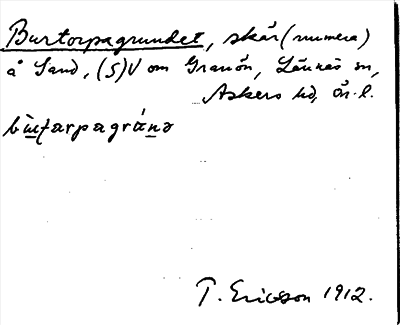 Burtorpagrundet, skär (numera)
å Sand, (S)V om Granön, Lännäs sn,
Askers hd, Ör. l.
T. Ericsson 1912.